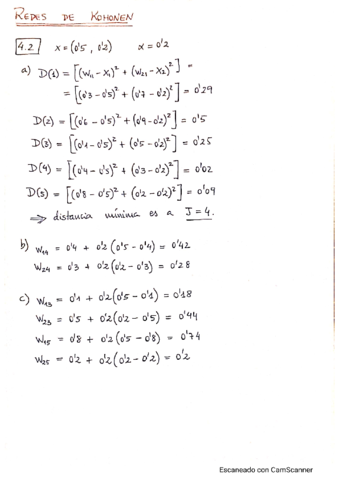 REDES DE KOHONEN
4.2 x=(0'5, 0'2) α=0'2
a) D(1) = [(W₁₁-X₁)² + (W₂₁-X₂)²] =
= [(0'3-0'5)² + (0'7-0'2)²] = 0'29
D(2) = [(0'6-0'5)² + (0'9-0'2)²] = 0'5
D(3) = [(0'1-0'5)² + (0'5-0'2)²] = 0'25
D(4) = [(0'4-0'5)² + (0'3-0'2)²] = 0'02
D(5) = [(0'8-0'5)² + (0'2-0'2)²] = 0'09
⇒ distancia mínima es a J=4.
b) W₁₄ = 0'4 + 0'2(0'5-0'4) = 0'42
W₂₄ = 0'3 + 0'2(0'2-0'3) = 0'28
c) W₁₃ = 0'1 + 0'2(0'5-0'1) = 0'18
W₂₃ = 0'5 + 0'2(0'2-0'5) = 0'44
W₁₅ = 0'8 + 0'2(0'5-0'8) = 0'74
W₂₅ = 0'2 + 0'2(0'2-0'2) = 0'2
Escaneado con CamScanner